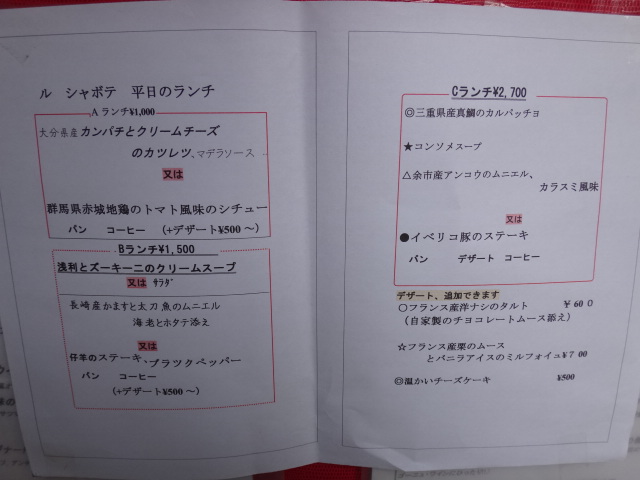 ル シャボテ 平日のランチ
A ランチ¥1,000
大分県産カンパチとクリームチーズ
のカツレツ、マデラソース
又は
群馬県赤城地鶏のトマト風味のシチュー
パン コーヒー (+デザート¥500～)
Bランチ¥1,500
浅利とズーキーニのクリームスープ
又は サラダ
長崎産かますと太刀魚のムニエル
海老とホタテ添え
又は
仔羊のステーキ、ブラックペッパー
パン コーヒー
(+デザート¥500～)
Cランチ¥2,700
◎三重県産真鯛のカルパッチョ
★コンソメスープ
△余市産アンコウのムニエル、
カラスミ風味
又は
●イベリコ豚のステーキ
パン デザート コーヒー
デザート、追加できます
○フランス産洋ナシのタルト ￥600
(自家製のチョコレートムース添え)
☆フランス産栗のムース
とバニラアイスのミルフォイユ¥700
◎温かいチーズケーキ ¥500